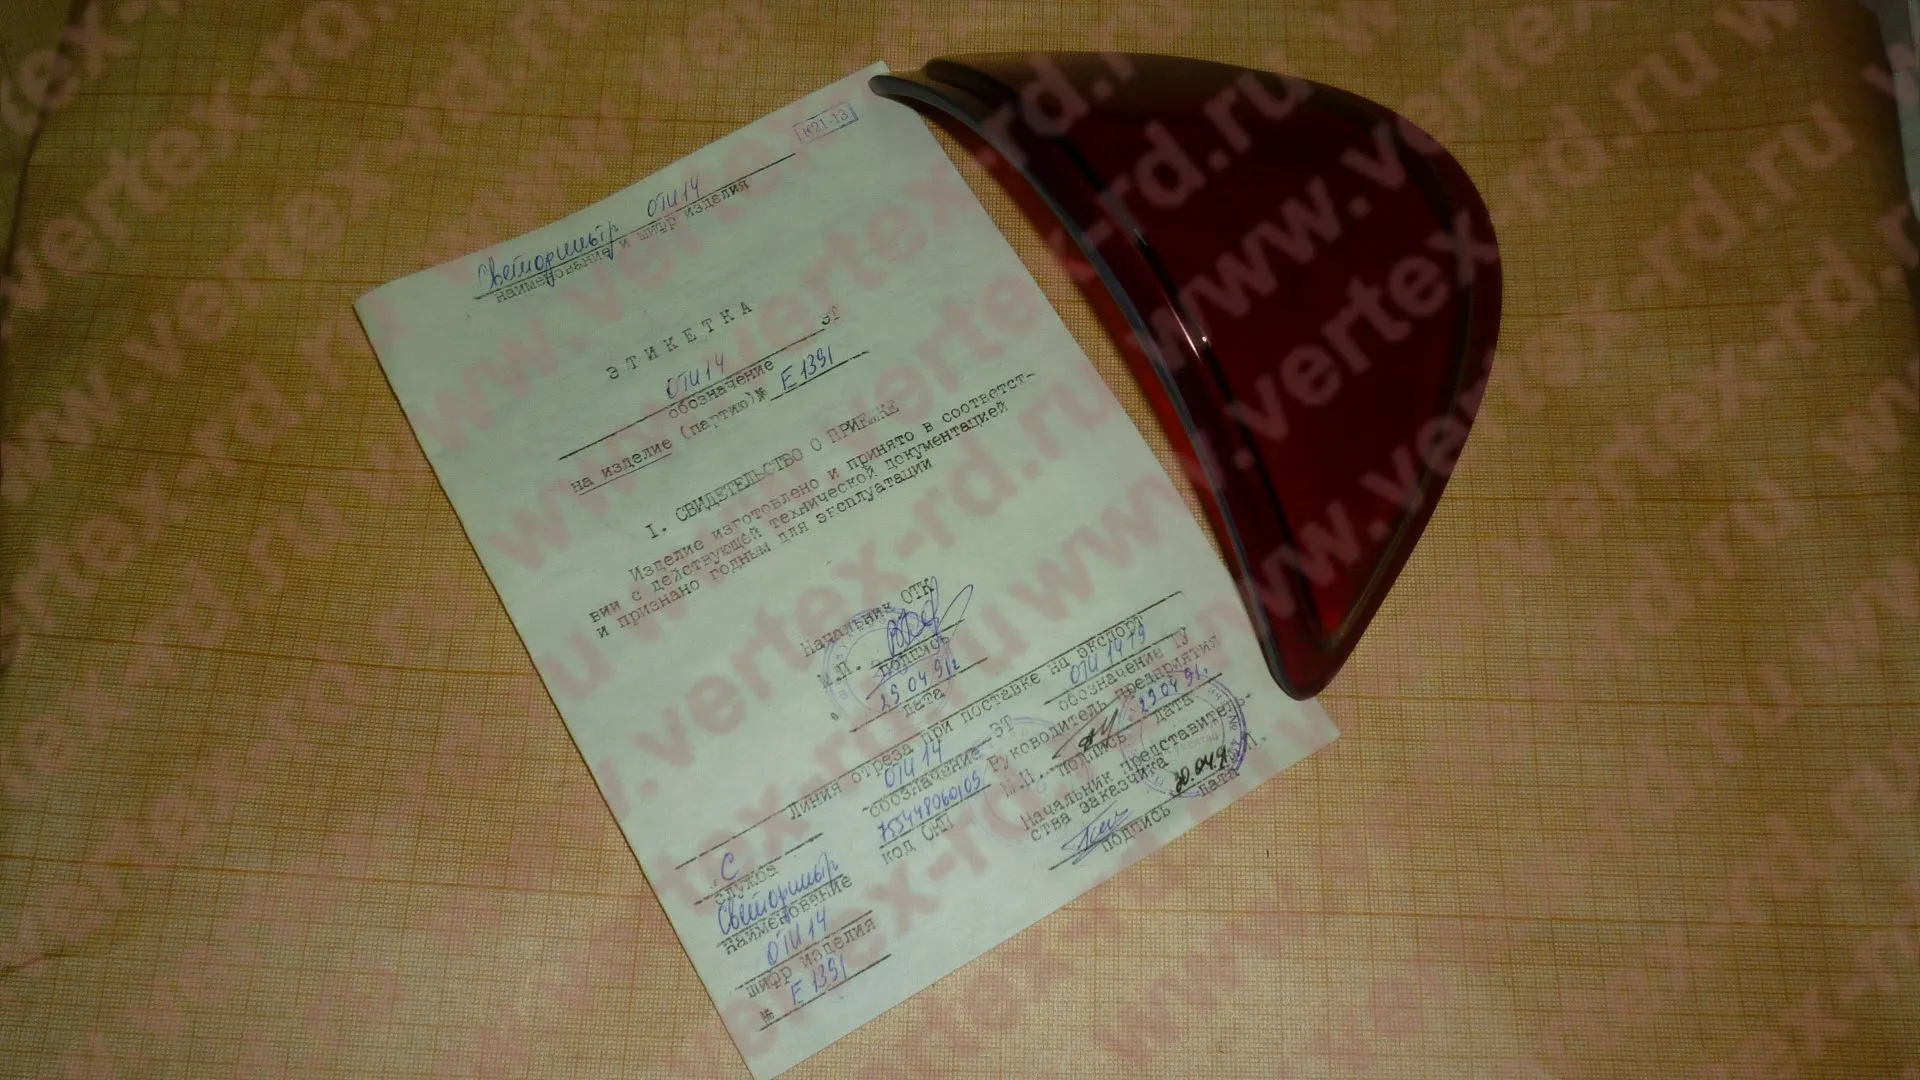 К21-13
Светофильтр ОТИ 14
наименование и шифр изделия
ЭТИКЕТКА
ОТИ 14 ЭТ
обозначение
на изделие (партию)№ Е 1391
I. СВИДЕТЕЛЬСТВО О ПРИЕМКЕ
Изделие изготовлено и принято в соответст-
вии с действующей технической документацией
и признано годным для эксплуатации
Начальник ОТК
М.П.
подпись
29.04.91г
дата
Линия отреза при поставке на экспорт
С
служба
Светофильтр
наименование
ОТИ 14
шифр изделия
№ Е 1391
ОТИ 14 ЭТ
обозначение
код ОКП
ОТИ 1479
обозначение ТУ
Руководитель предприятия
29.04.91г.
М.П. подпись дата
Начальник представитель-
ства заказчика
30.04.91
подпись дата
www.vertex-rd.ru